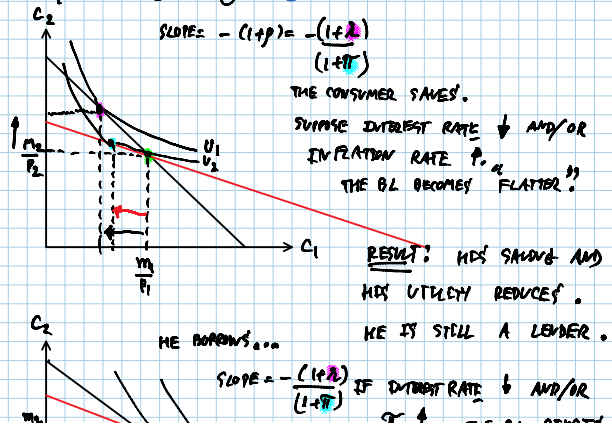 C₂
SLOPE = - (1+ρ) = - (1+r)
(1+π)
THE CONSUMER SAVES.
SUPPOSE INTEREST RATE ↓ AND/OR
INFLATION RATE ↑.
THE BL BECOMES "FLATTER".
U1
U2
m₂
P₂
C₁
m₁
P₁
RESULT: HIS SAVING AND
HIS UTILITY REDUCES.
HE IS STILL A LENDER.
C₂
HE BORROWS...
SLOPE = - (1+r)
(1+π)
IF INTEREST RATE ↓ AND/OR
m₂
π ↑